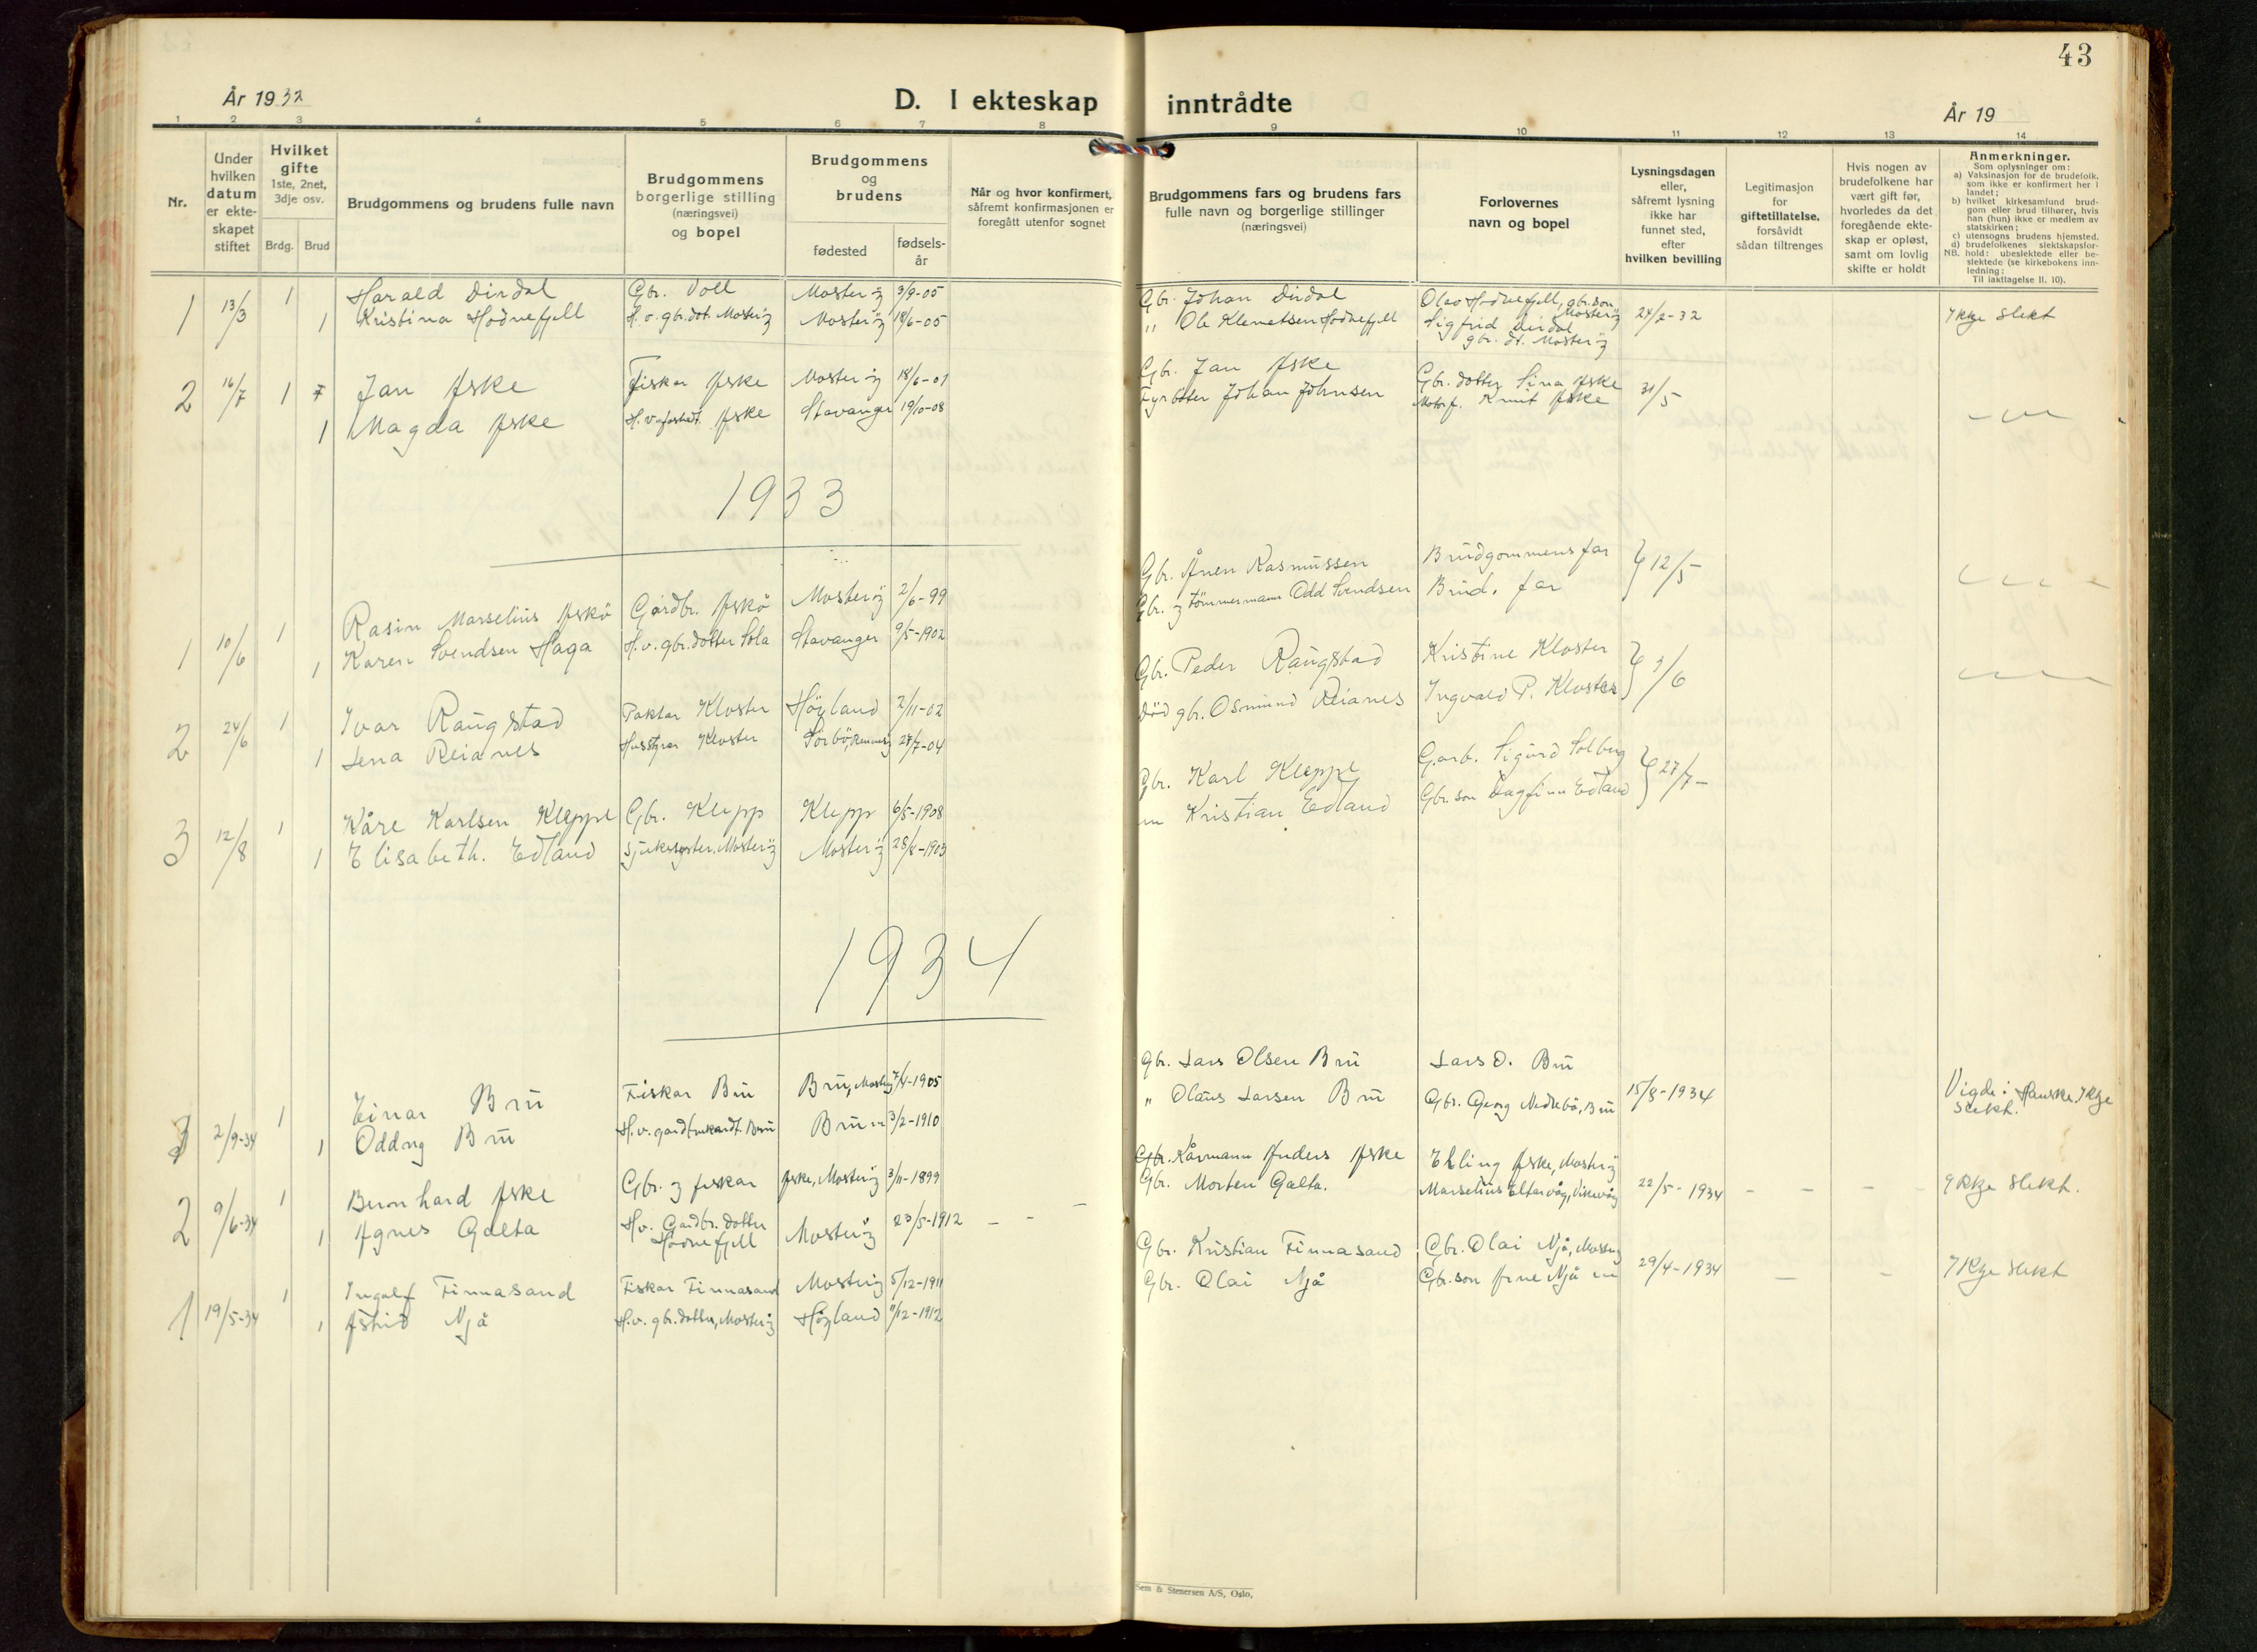 43
År 1932
D. I ekteskap inntrådte
År 19
1 2 3 4 5 6 7 8 9 10 11 12 13 14
Nr.
Under hvilken datum er ekte-skapet stiftet
Hvilket gifte 1ste, 2net, 3dje osv.
Brdg. Brud
Brudgommens og brudens fulle navn
Brudgommens borgerlige stilling (næringsvei) og bopel
Brudgommens og brudens
fødested
fødsels-år
Når og hvor konfirmert, såfremt konfirmasjonen er foregått utenfor sognet
Brudgommens fars og brudens fars fulle navn og borgerlige stillinger (næringsvei)
Forlovernes navn og bopel
Lysningsdagen eller, såfremt lysning ikke har funnet sted, efter hvilken bevilling
Legitimasjon for giftetillatelse, forsåvidt sådan tiltrenges
Hvis nogen av brudefolkene har vært gift før, hvorledes da det foregående ekte-skap er opløst, samt om lovlig skifte er holdt
Anmerkninger.
Som oplysninger om:
a) Vaksinasjon for de brudefolk, som ikke er konfirmert her i landet;
b) hvilket kirkesamfund brud-gom eller brud tilhører, hvis han (hun) ikke er medlem av statskirken;
c) utensogns brudens hjemsted.
d) brudefolkenes slektskapsfor-hold: ubeslektede eller be-slektede (se kirkebokens inn-ledning:
NB.
Til iakttagelse II. 10).
1 13/3 1 Harald Dirdal Gbr. Voll Mosterøy 3/9-05 Gbr. Johan Dirdal Olav Hodnefjell, gbr.son Mosterøy 24/2-32 Ikkje slekt
1 Kristina Hodnefjell H.v. gbr.dot. Mosterøy Mosterøy 18/6-05 " Ole Klemetsen Hodnefjell Sigfrid Dirdal gbr. dt. Mosterøy
2 16/7 1 Jan Aske Fiskar Aske Mosterøy 18/6-01 Gbr. Jan Aske Gbr. dotter Sina Aske 31/5
1 Magda Aske Aske Stavanger 19/10-08 Johan Johnsen Motorf. Knut Aske
1933
1 10/6 1 Rasin Marselius Askö Gardbr. Askö Mosterøy 2/6-99 Gbr. Ånen Rasmussen Brudgommens far 12/5
1 Karen Svendsen Haga H.v. gbr.dotter Sola Stavanger 9/5-1902 Gbr. og tömmermann Odd Svendsen Brud. far
2 24/6 1 Ivar Raugstad Paktar Kloster Höyland 2/11-02 Gbr. Peder Raugstad Kristine Kloster 3/6
1 Lena Reianes Husstyrar Kloster Sörbö, Rennesøy 27/7-04 Död gbr. Osmund Reianes Ingvald P. Kloster
3 12/8 1 Kåre Karlsen Kleppe Gbr. Klepp Klepp 6/5-1908 Gbr. Karl Kleppe Garb. Sigurd Solberg 27/7
1 Elisabeth. Edland Sjukesyster, Mosterøy Mosterøy 28/8-1903 Kristian Edland Gbr.son Dagfinn Edland
1934
3 2/9-34 1 Einar Bru Fiskar Bru Bru, Mosterøy 7/4-1905 Gbr. Lars Olsen Bru Lars O. Bru 15/8-1934 Vigde i Hauske. Ikkje slekt.
1 Oddny Bru Bru 3/2-1910 " Olaus Larsen Bru Gbr. Georg Nedrebö, Bru
2 9/6-34 1 Bernhard Aske Gbr. og fiskar Aske, Mosterøy 3/11-1899 Gbr. Kårmann Anders Aske Erling Aske, Mosterøy 22/5-1934 Ikkje slekt.
1 Agnes Galta Hv. Gardbr. dotter Hodnefjell Mosterøy 23/5-1912 Gbr. Morten Galta. Marselius Eltarvåg, Vikevåg
1 19/5-34 1 Ingolf Finnasand Fiskar Finnasand Mosterøy 5/12-1911 Gbr. Kristian Finnasand Gbr. Olai Njå, Mosterøy 29/4-1934 Ikkje slekt
1 Astrid Njå H.v. gbr.dotter, Mosterøy Höyland 11/12-1912 Gbr. Olai Njå Gbr.son Arne Njå
Sem & Stenersen A/S, Oslo.